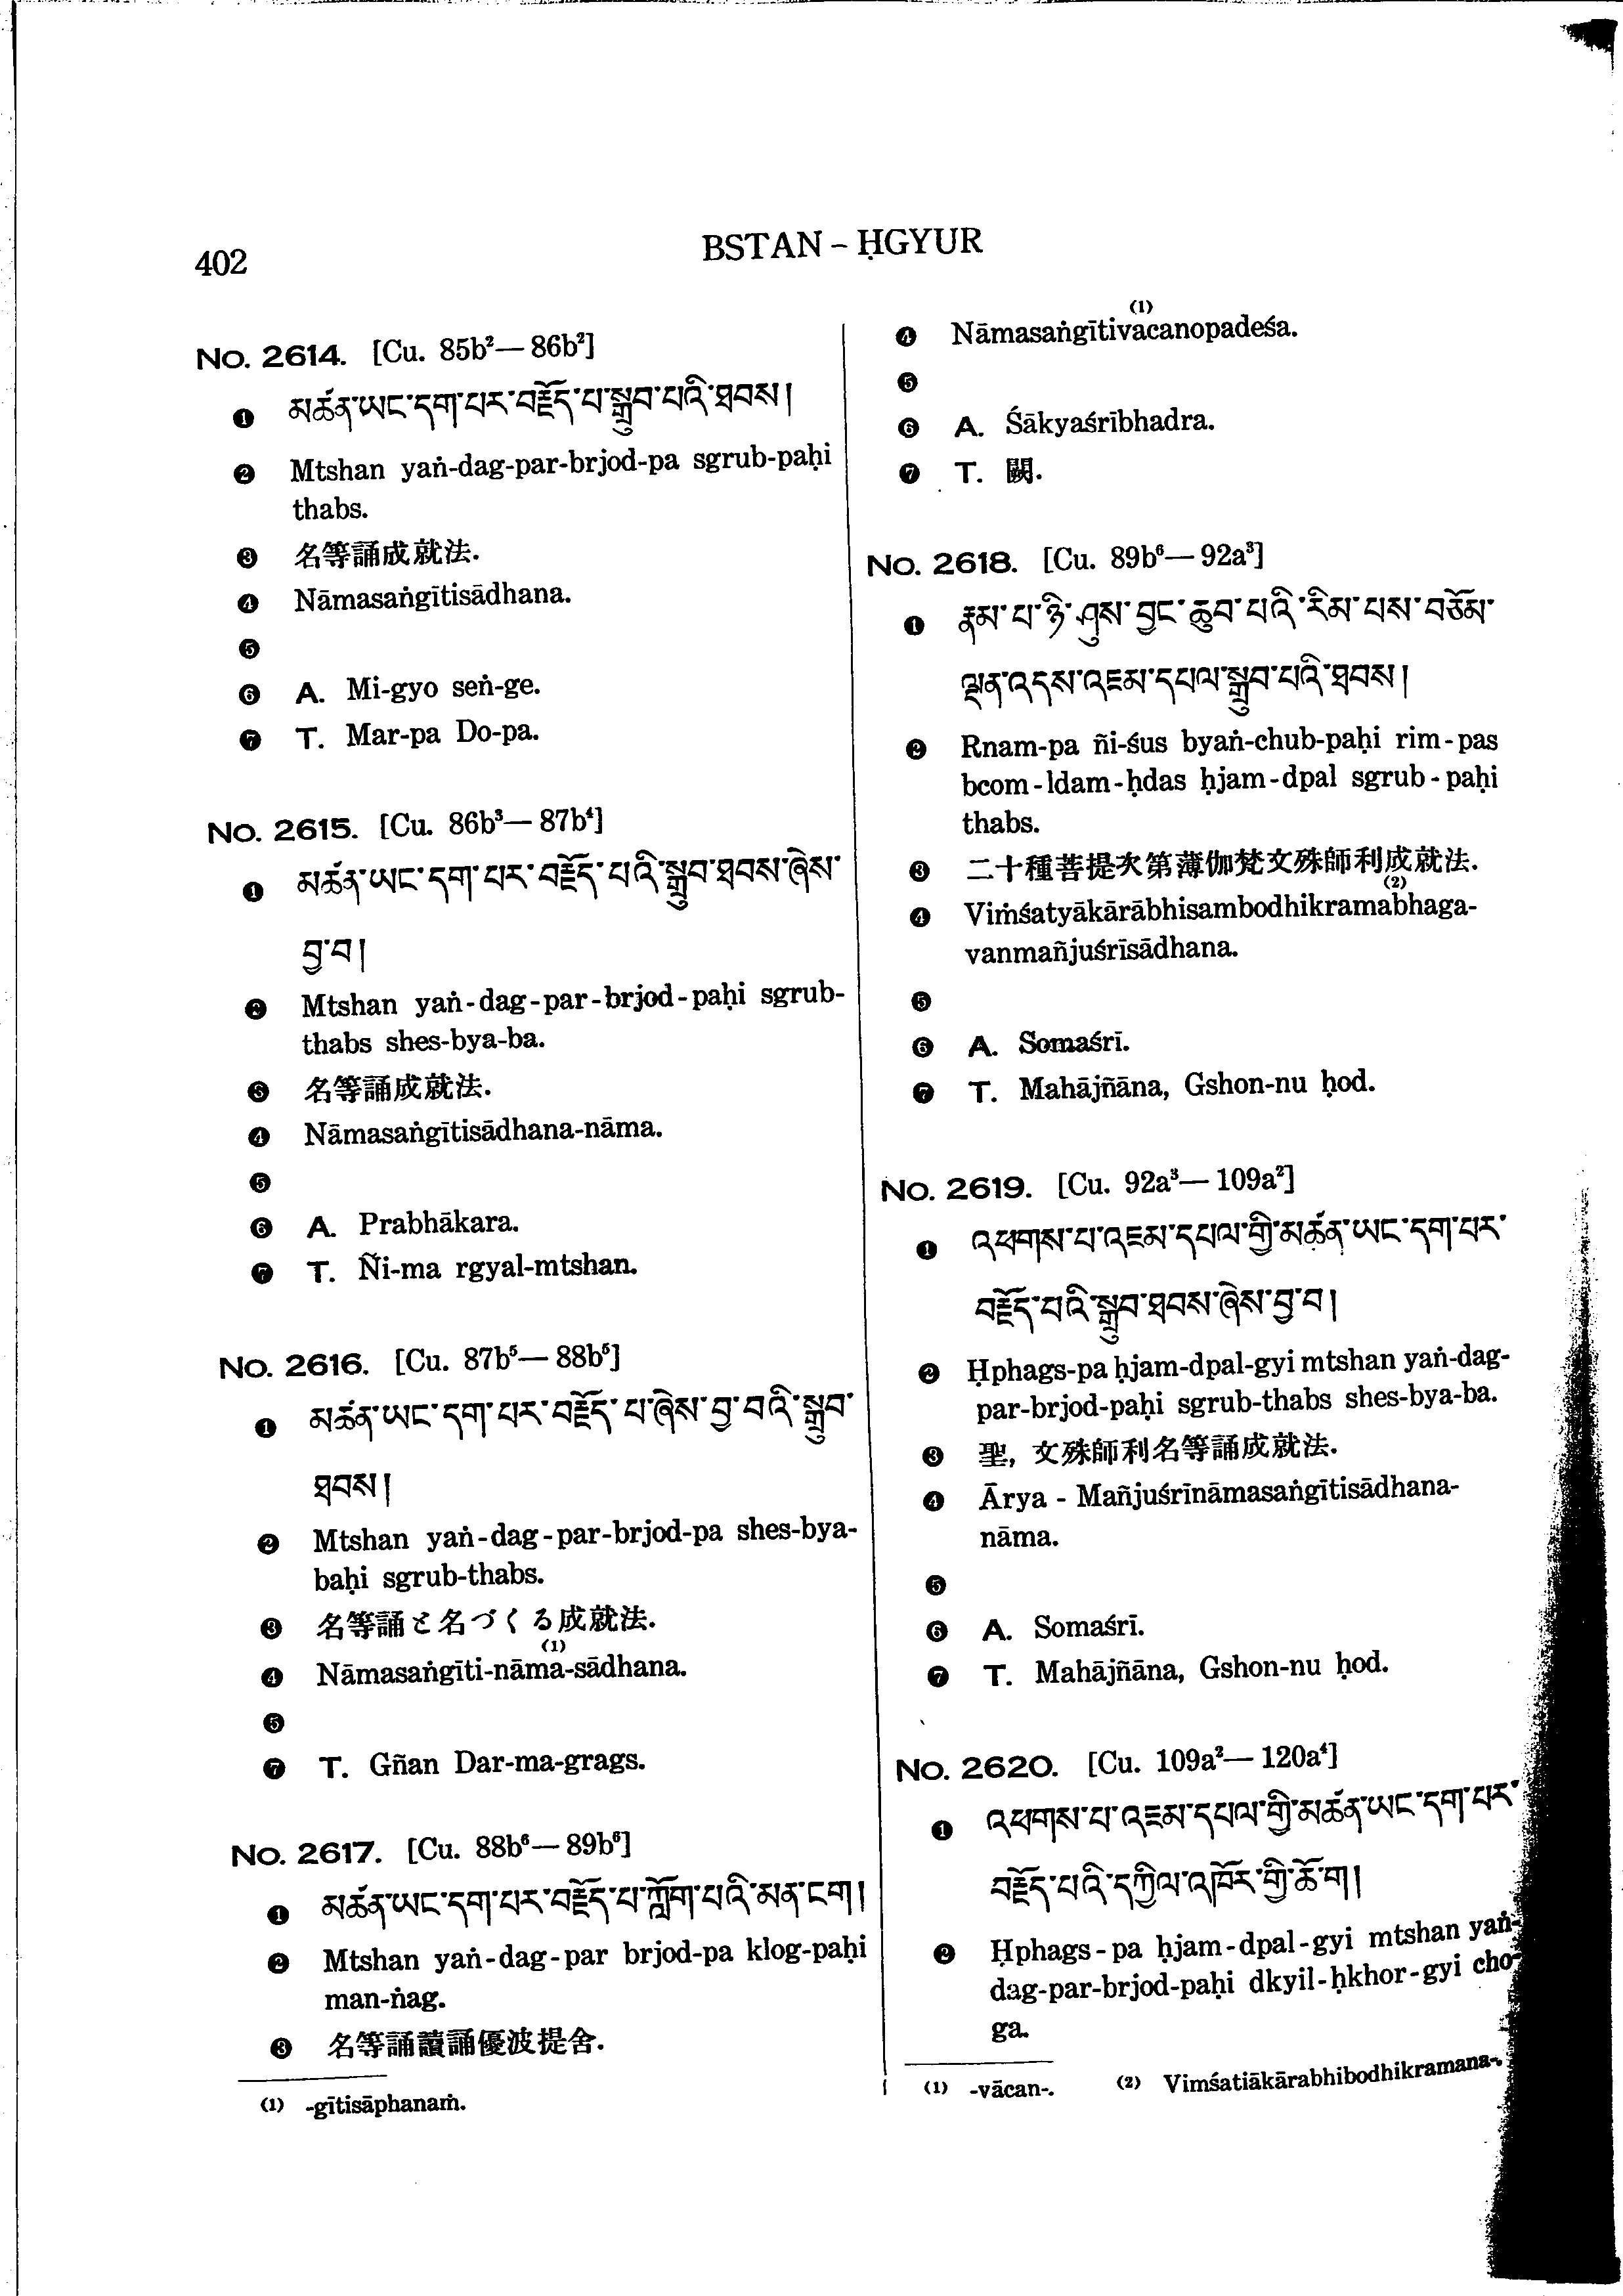 402
BSTAN – ḤGYUR
No. 2614. [Cu. 85b²— 86b²]
❶ མཚན་ཡང་དག་པར་བརྗོད་པ་སྒྲུབ་པའི་ཐབས།
❷ Mtshan yaṅ-dag-par-brjod-pa sgrub-paḥi
thabs.
❸ 名等誦成就法.
❹ Nāmasaṅgītisādhana.
❺
❻ A. Mi-gyo seṅ-ge.
❼ T. Mar-pa Do-pa.
No. 2615. [Cu. 86b³— 87b⁴]
❶ མཚན་ཡང་དག་པར་བརྗོད་པའི་སྒྲུབ་ཐབས་ཞེས་
བྱ་བ།
❷ Mtshan yaṅ-dag-par-brjod-paḥi sgrub-
thabs shes-bya-ba.
❸ 名等誦成就法.
❹ Nāmasaṅgītisādhana-nāma.
❺
❻ A. Prabhākara.
❼ T. Ñi-ma rgyal-mtshan.
No. 2616. [Cu. 87b⁵— 88b⁵]
❶ མཚན་ཡང་དག་པར་བརྗོད་པ་ཞེས་བྱ་བའི་སྒྲུབ་
ཐབས།
❷ Mtshan yaṅ-dag-par-brjod-pa shes-bya-
baḥi sgrub-thabs.
❸ 名等誦と名づくる成就法.
❹ Nāmasaṅgīti-nāma-sādhana.⁽¹⁾
❺
❼ T. Gñan Dar-ma-grags.
No. 2617. [Cu. 88b⁶— 89b⁶]
❶ མཚན་ཡང་དག་པར་བརྗོད་པ་ཀློག་པའི་མན་ངག།
❷ Mtshan yaṅ-dag-par brjod-pa klog-paḥi
man-ṅag.
❸ 名等誦讀誦優波提舍.
(1) -gītisāphanaṁ.
❹ Nāmasaṅgītivacanopadeśa.⁽¹⁾
❺
❻ A. Śākyaśrībhadra.
❼ T. 闕.
No. 2618. [Cu. 89b⁶— 92a³]
❶ རྣམ་པ་ཉི་ཤུས་བྱང་ཆུབ་པའི་རིམ་པས་བཅོམ་
ལྡན་འདས་འཇམ་དཔལ་སྒྲུབ་པའི་ཐབས།
❷ Rnam-pa ñi-śus byaṅ-chub-paḥi rim-pas
bcom-ldam-ḥdas ḥjam-dpal sgrub-paḥi
thabs.
❸ 二十種菩提次第薄伽梵文殊師利成就法.
❹ Viṁśatyākārābhisambodhikramabhaga-⁽²⁾
vanmañjuśrīsādhana.
❺
❻ A. Somaśrī.
❼ T. Mahājñāna, Gshon-nu ḥod.
No. 2619. [Cu. 92a³— 109a²]
❶ འཕགས་པ་འཇམ་དཔལ་གྱི་མཚན་ཡང་དག་པར་
བརྗོད་པའི་སྒྲུབ་ཐབས་ཞེས་བྱ་བ།
❷ Ḥphags-pa ḥjam-dpal-gyi mtshan yaṅ-dag-
par-brjod-paḥi sgrub-thabs shes-bya-ba.
❸ 聖, 文殊師利名等誦成就法.
❹ Ārya - Mañjuśrīnāmasaṅgītisādhana-
nāma.
❺
❻ A. Somaśrī.
❼ T. Mahājñāna, Gshon-nu ḥod.
No. 2620. [Cu. 109a²— 120a⁴]
❶ འཕགས་པ་འཇམ་དཔལ་གྱི་མཚན་ཡང་དག་པར་
བརྗོད་པའི་དཀྱིལ་འཁོར་གྱི་ཆོ་ག།
❷ Ḥphags-pa ḥjam-dpal-gyi mtshan yaṅ-
dag-par-brjod-paḥi dkyil-ḥkhor-gyi cho-
ga.
(1) -vācan-. (2) Vimśatiākārabhibodhikramana-.